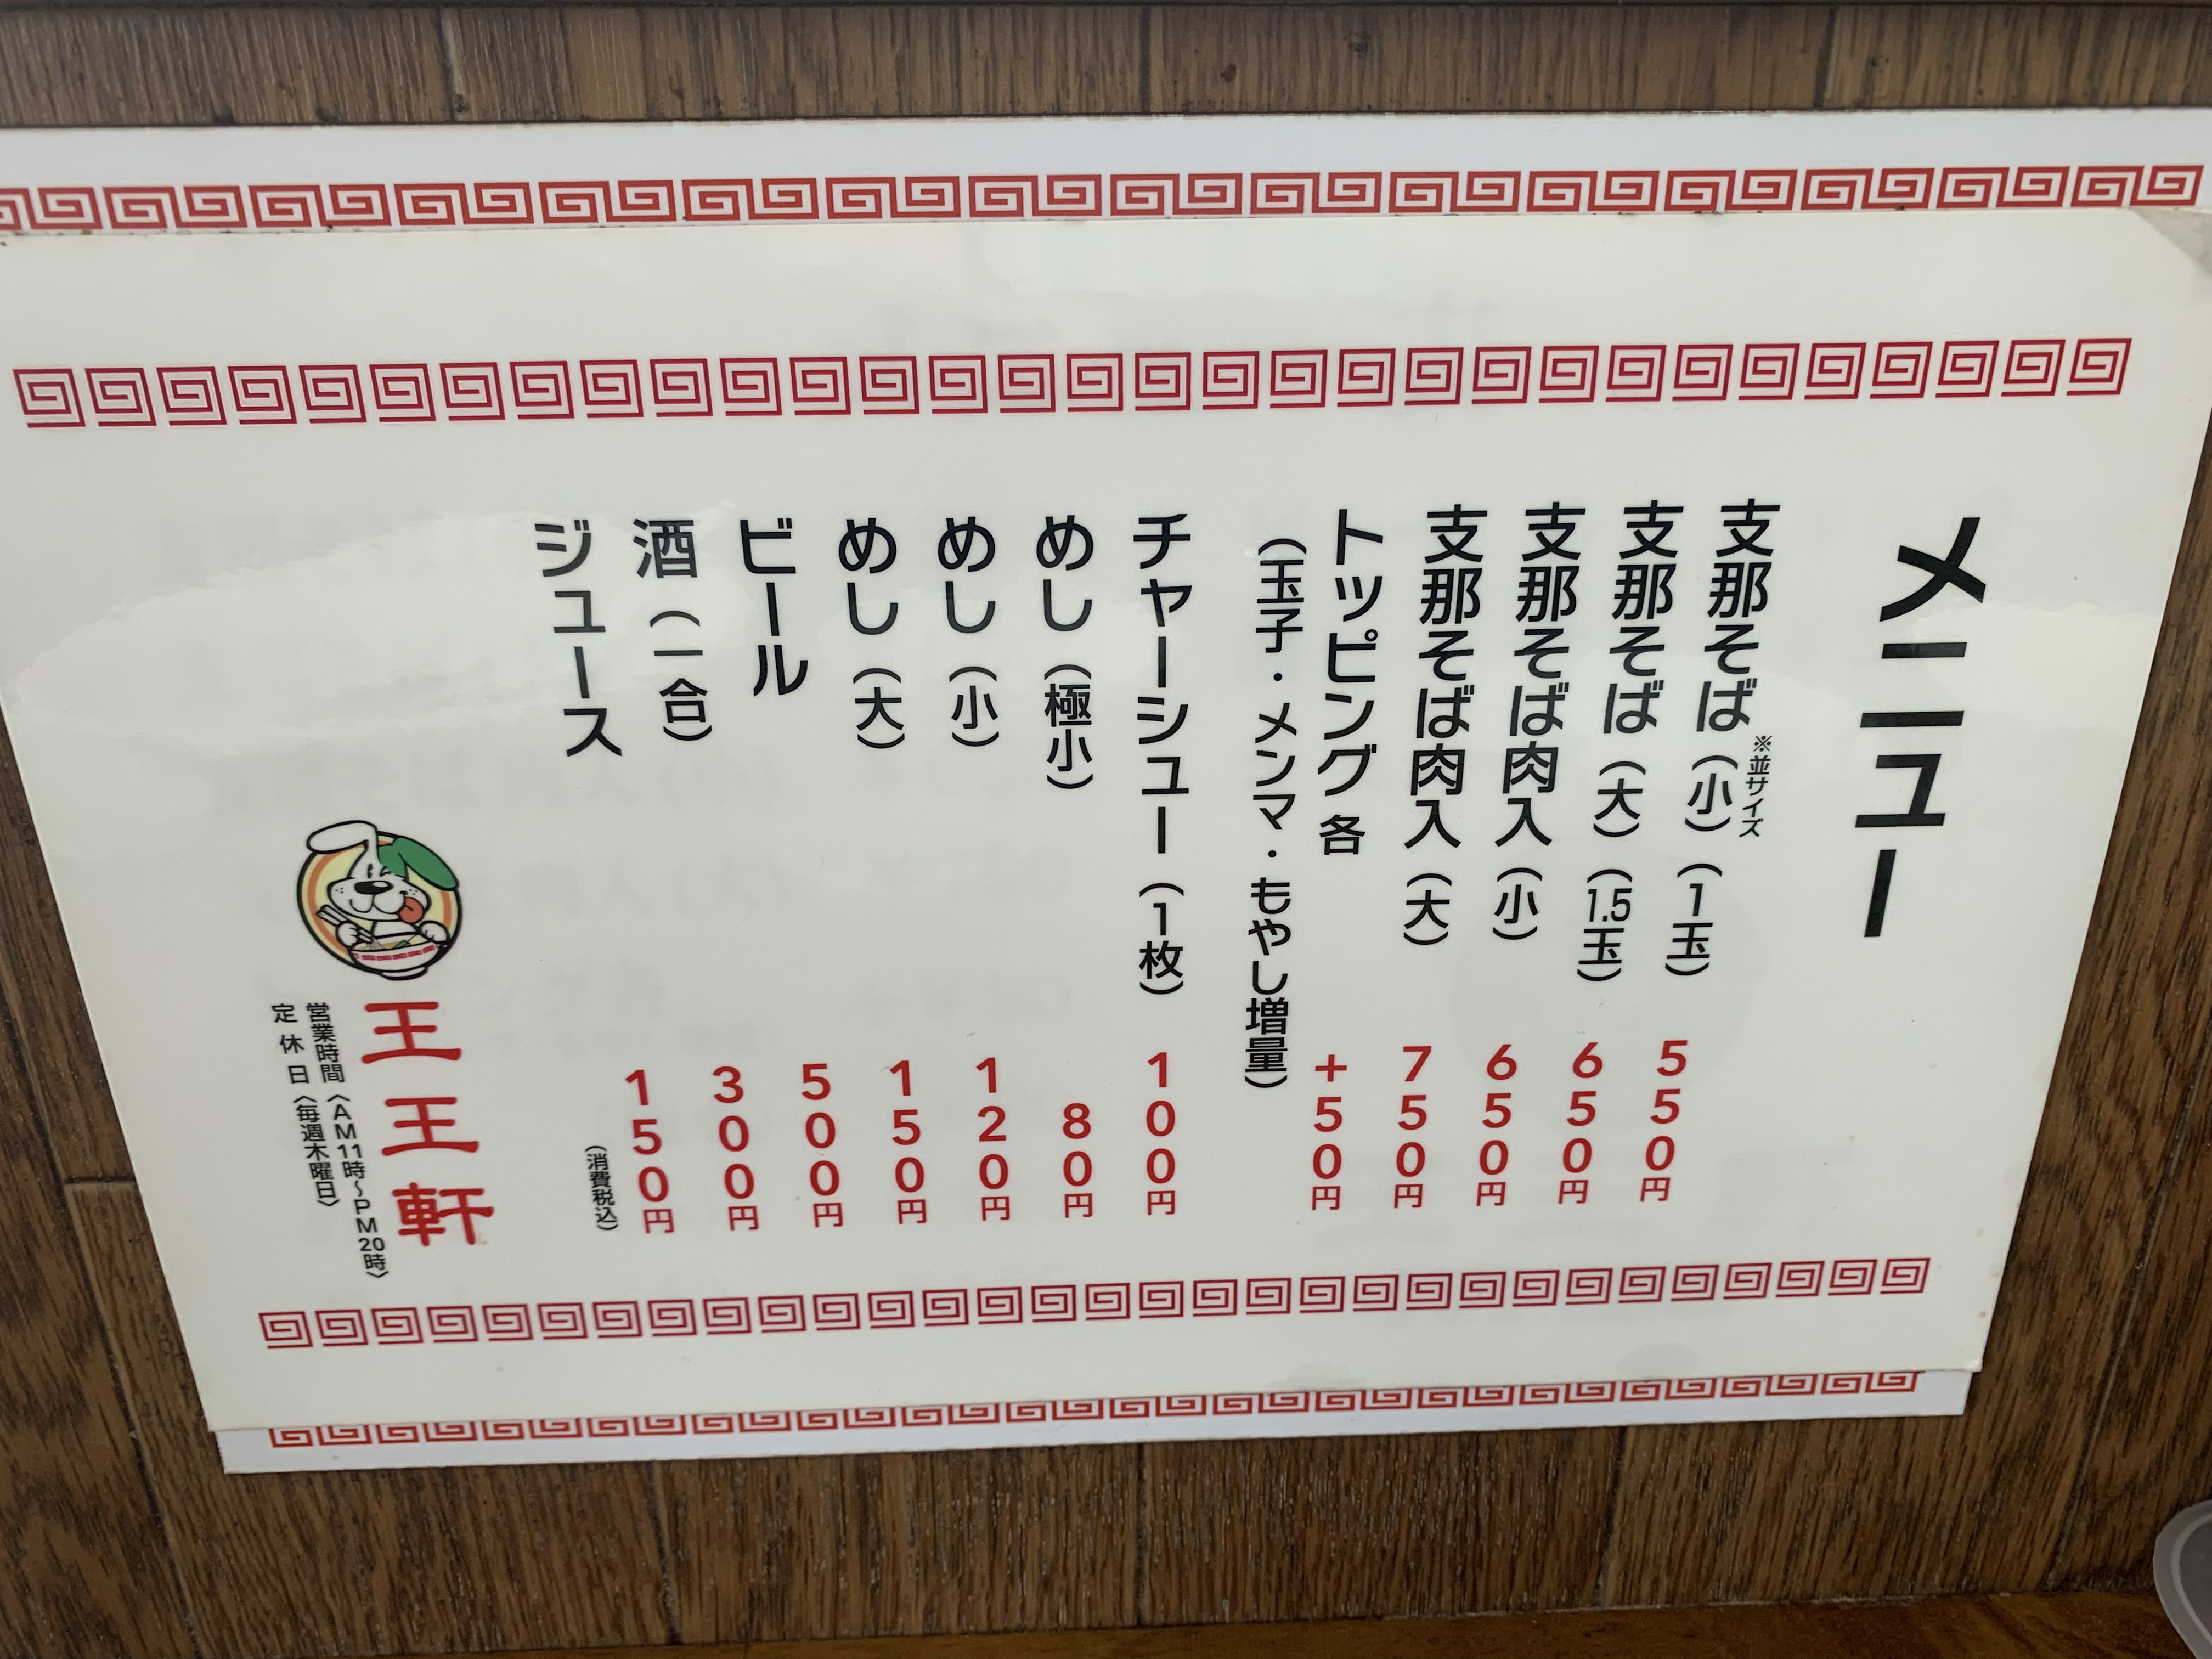 メニュー
支那そば（小）（1玉） 550円
※並サイズ
支那そば（大）（1.5玉） 650円
支那そば肉入（小） 650円
支那そば肉入（大） 750円
トッピング 各 +50円
（玉子・メンマ・もやし増量）
チャーシュー（1枚） 100円
めし（極小） 80円
めし（小） 120円
めし（大） 150円
ビール 500円
酒（一合） 300円
ジュース 150円
（消費税込）
王王軒
営業時間〈AM11時～PM20時〉
定休日〈毎週木曜日〉